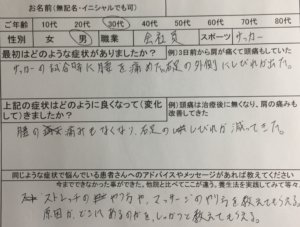 お名前(無記名・イニシャルでも可)
ご年齢 10代 20代 30代 40代 50代 60代 70代 80代
性別 女 男 職業 会社員 スポーツ サッカー
最初はどのような症状がありましたか? 例)3日前から肩が痛くて頭痛もしていた
サッカーの試合時に腰を痛めた。右足の外側にしびれが出た。
上記の症状はどのように良くなって(変化して)きましたか? 例)頭痛は治療後に無くなり、肩の痛みも改善してきた
腰の痛みもなくなり、右足のしびれが減ってきた。
同じような症状で悩んでいる患者さんへのアドバイスやメッセージがあれば教えてください
今までできなかった事ができた。他院と比べてここが違う。養生法を実践してみて等々。
ストレッチのやり方や、マッサージのやり方を教えてもらえる。
原因がどこにあるのかを、しっかりと教えてもらえる。